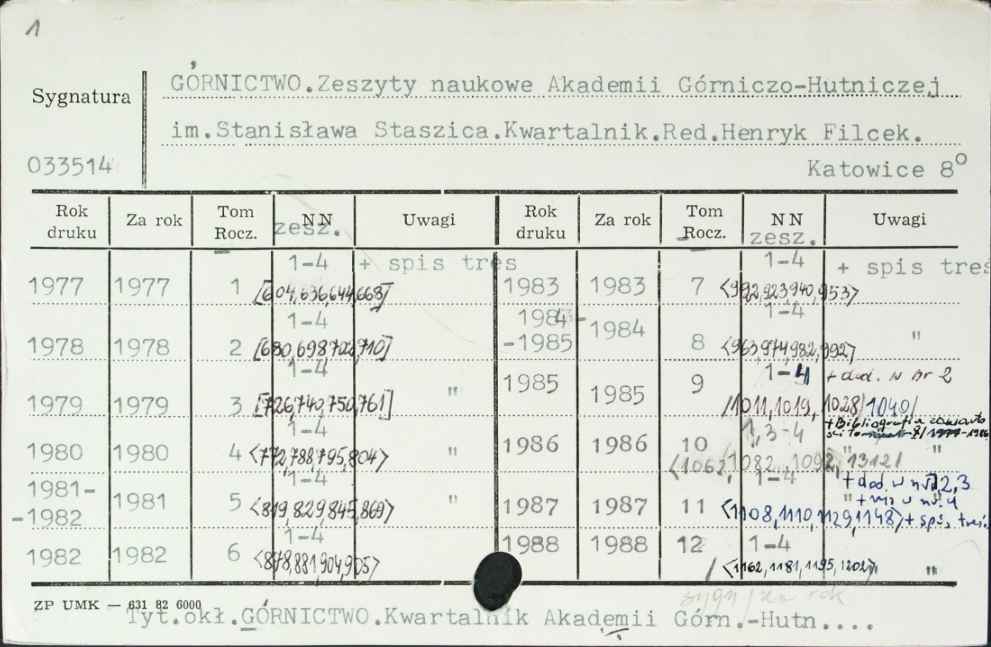 1
GÓRNICTWO.Zeszyty naukowe Akademii Górniczo-Hutniczej
Sygnatura
im.Stanisława Staszica.Kwartalnik.Red.Henryk Filcek.
033514
Katowice 8°
Rok druku Za rok Tom Rocz. NN zesz. Uwagi Rok druku Za rok Tom Rocz. NN zesz. Uwagi
1977 1977 1 1-4 [604,636,644,668] + spis treś
1983 1983 7 1-4 <992,923,940,953> + spis treś
1978 1978 2 1-4 [680,698,702,710]
1984-1985 1984 8 1-4 <963,974,982,992> "
1979 1979 3 1-4 [726,740,750,761] "
1985 1985 9 1-4 /1011,1019,1028/1040/ + dod. w nr 2
1980 1980 4 1-4 <772,788,795,804> "
1986 1986 10 1,3-4 <1062,1082,1092,1312/ + Bibliografia zawarto ści " "
1981-1982 1981 5 1-4 <819,829,845,869> "
1987 1987 11 1-4 <1108,1110,1129,1148> + dod. w nr 2,3 w nr 4 + spis treśc
1982 1982 6 1-4 <878,881,904,905>
1988 1988 12 1-4 <1162,1181,1195,1202> "
ZP UMK — 631 82 6000
sygn/za rok
Tyt.okł.GÓRNICTWO.Kwartalnik Akademii Górn.-Hutn....